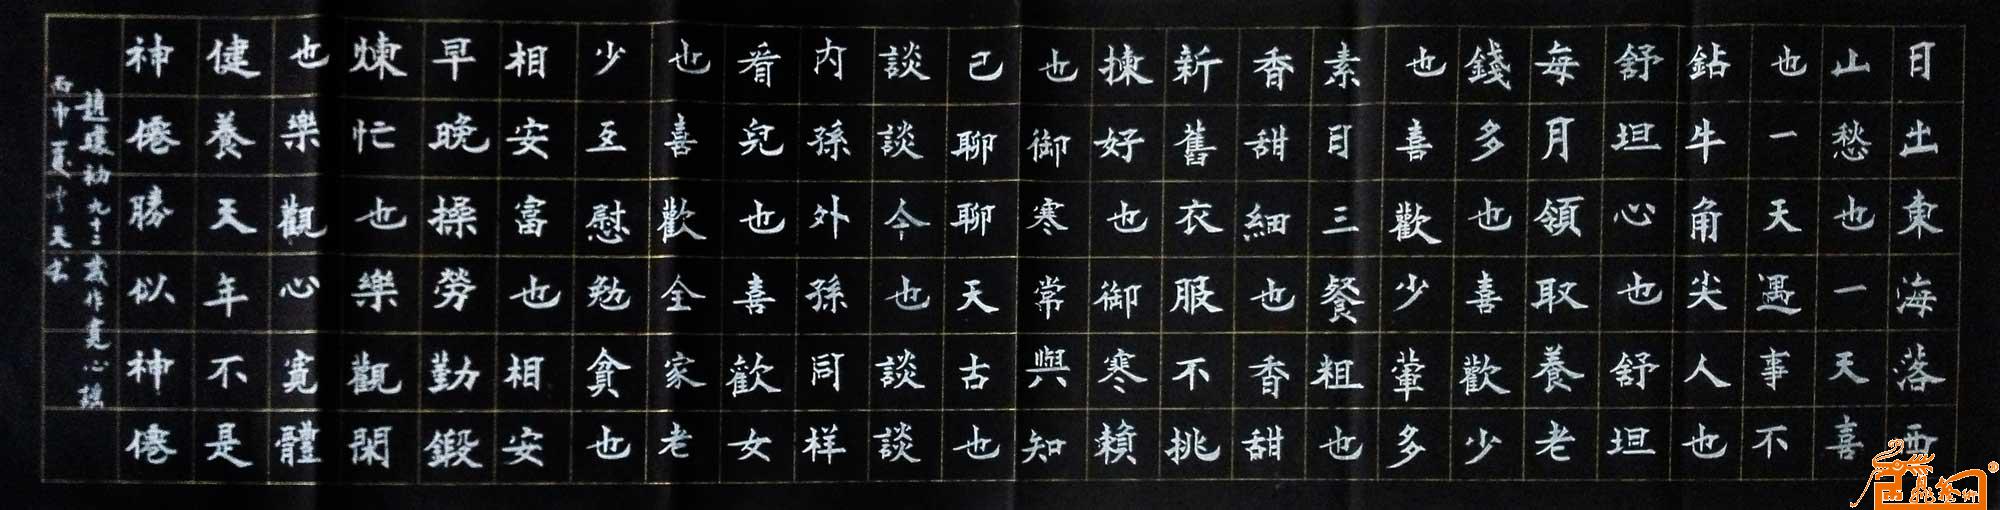 日出東海落西
山愁也一天喜
也一天遇事不
鉆牛角尖人也
舒坦心也舒坦
每月領取養老
錢多也喜歡少
也喜歡少葷多
素日三餐粗也
香甜細也香甜
新舊衣服不挑
揀好也御寒賴
也御寒常與知
己聊聊天古也
談談今也談談
內孫外孫同樣
看兒也喜歡女
也喜歡全家老
少互慰勉貧也
相安富也相安
早晚操勞勤鍛
煉忙也樂觀閑
也樂觀心寬體
健養天年不是
神僊勝似神僊
趙璞初九十二歲作寬心謠
丙申夏天書